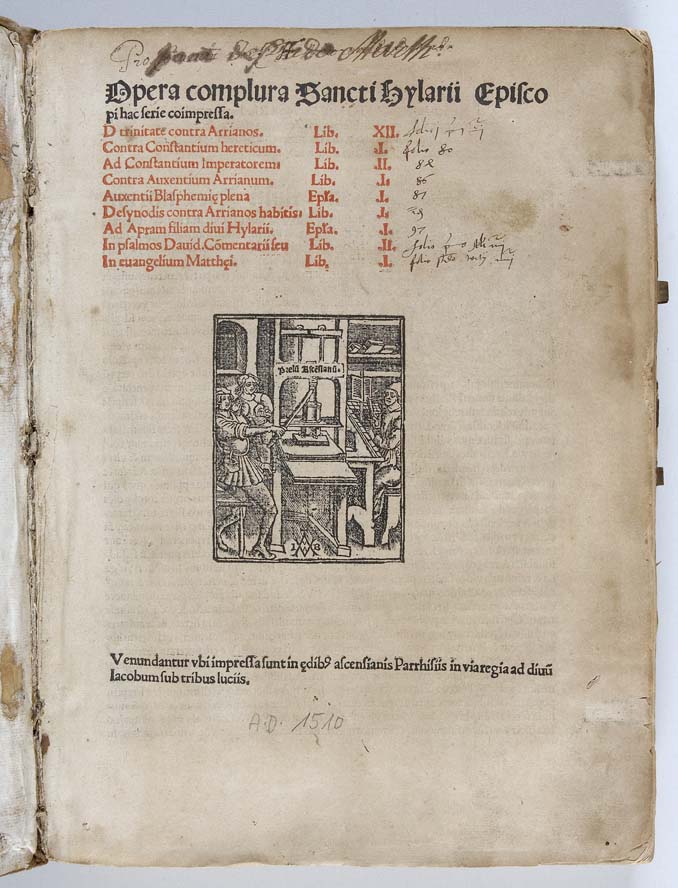 Opera complura Sancti Hylarii Episco
pi hac serie coimpressa.
D trinitate contra Arrianos. Lib. XII.
Contra Constantium hereticum. Lib. .I. folio 80
Ad Constantium Imperatorem: Lib. .II.
Contra Auxentium Arrianum. Lib. .I. 86
Auxentii Blasphemię plena Epła. .I. 87
De synodis contra Arrianos habitis: Lib. .I.
Ad Apram filiam diui Hylarii. Epła. .I. 97
In psalmos Dauid. Cōmentarii seu Lib. .II. folio
In euangelium Matthęi. Lib. .I. folio
Prelū Ascēsianū.
Venundantur vbi impressa sunt in ędibꝰ ascensianis Parrhisiis in via regia ad diuū
Iacobum sub tribus luciis.
A.D. 1510